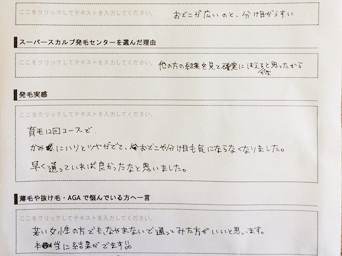 ここをクリックしてテキストを入力してください。
おでこが広いのと、分け目がうすい
スーパースカルプ発毛センターを選んだ理由
ここをクリックしてテキストを入力してください。
他の方の結果を見て確実にはえると思ったから
発毛実感
ここをクリックしてテキストを入力してください。
育毛12回コースで、
かみにハリとツヤがでて、おでこや分け目も気にならなくなりました。
早く通っていれば良かったなと思いました。
薄毛や抜け毛・AGAで悩んでいる方へ一言
ここをクリックしてテキストを入力してください。
若い女性の方でも、なやまないで通ってみた方がいいと思います。
本当に結果がでます